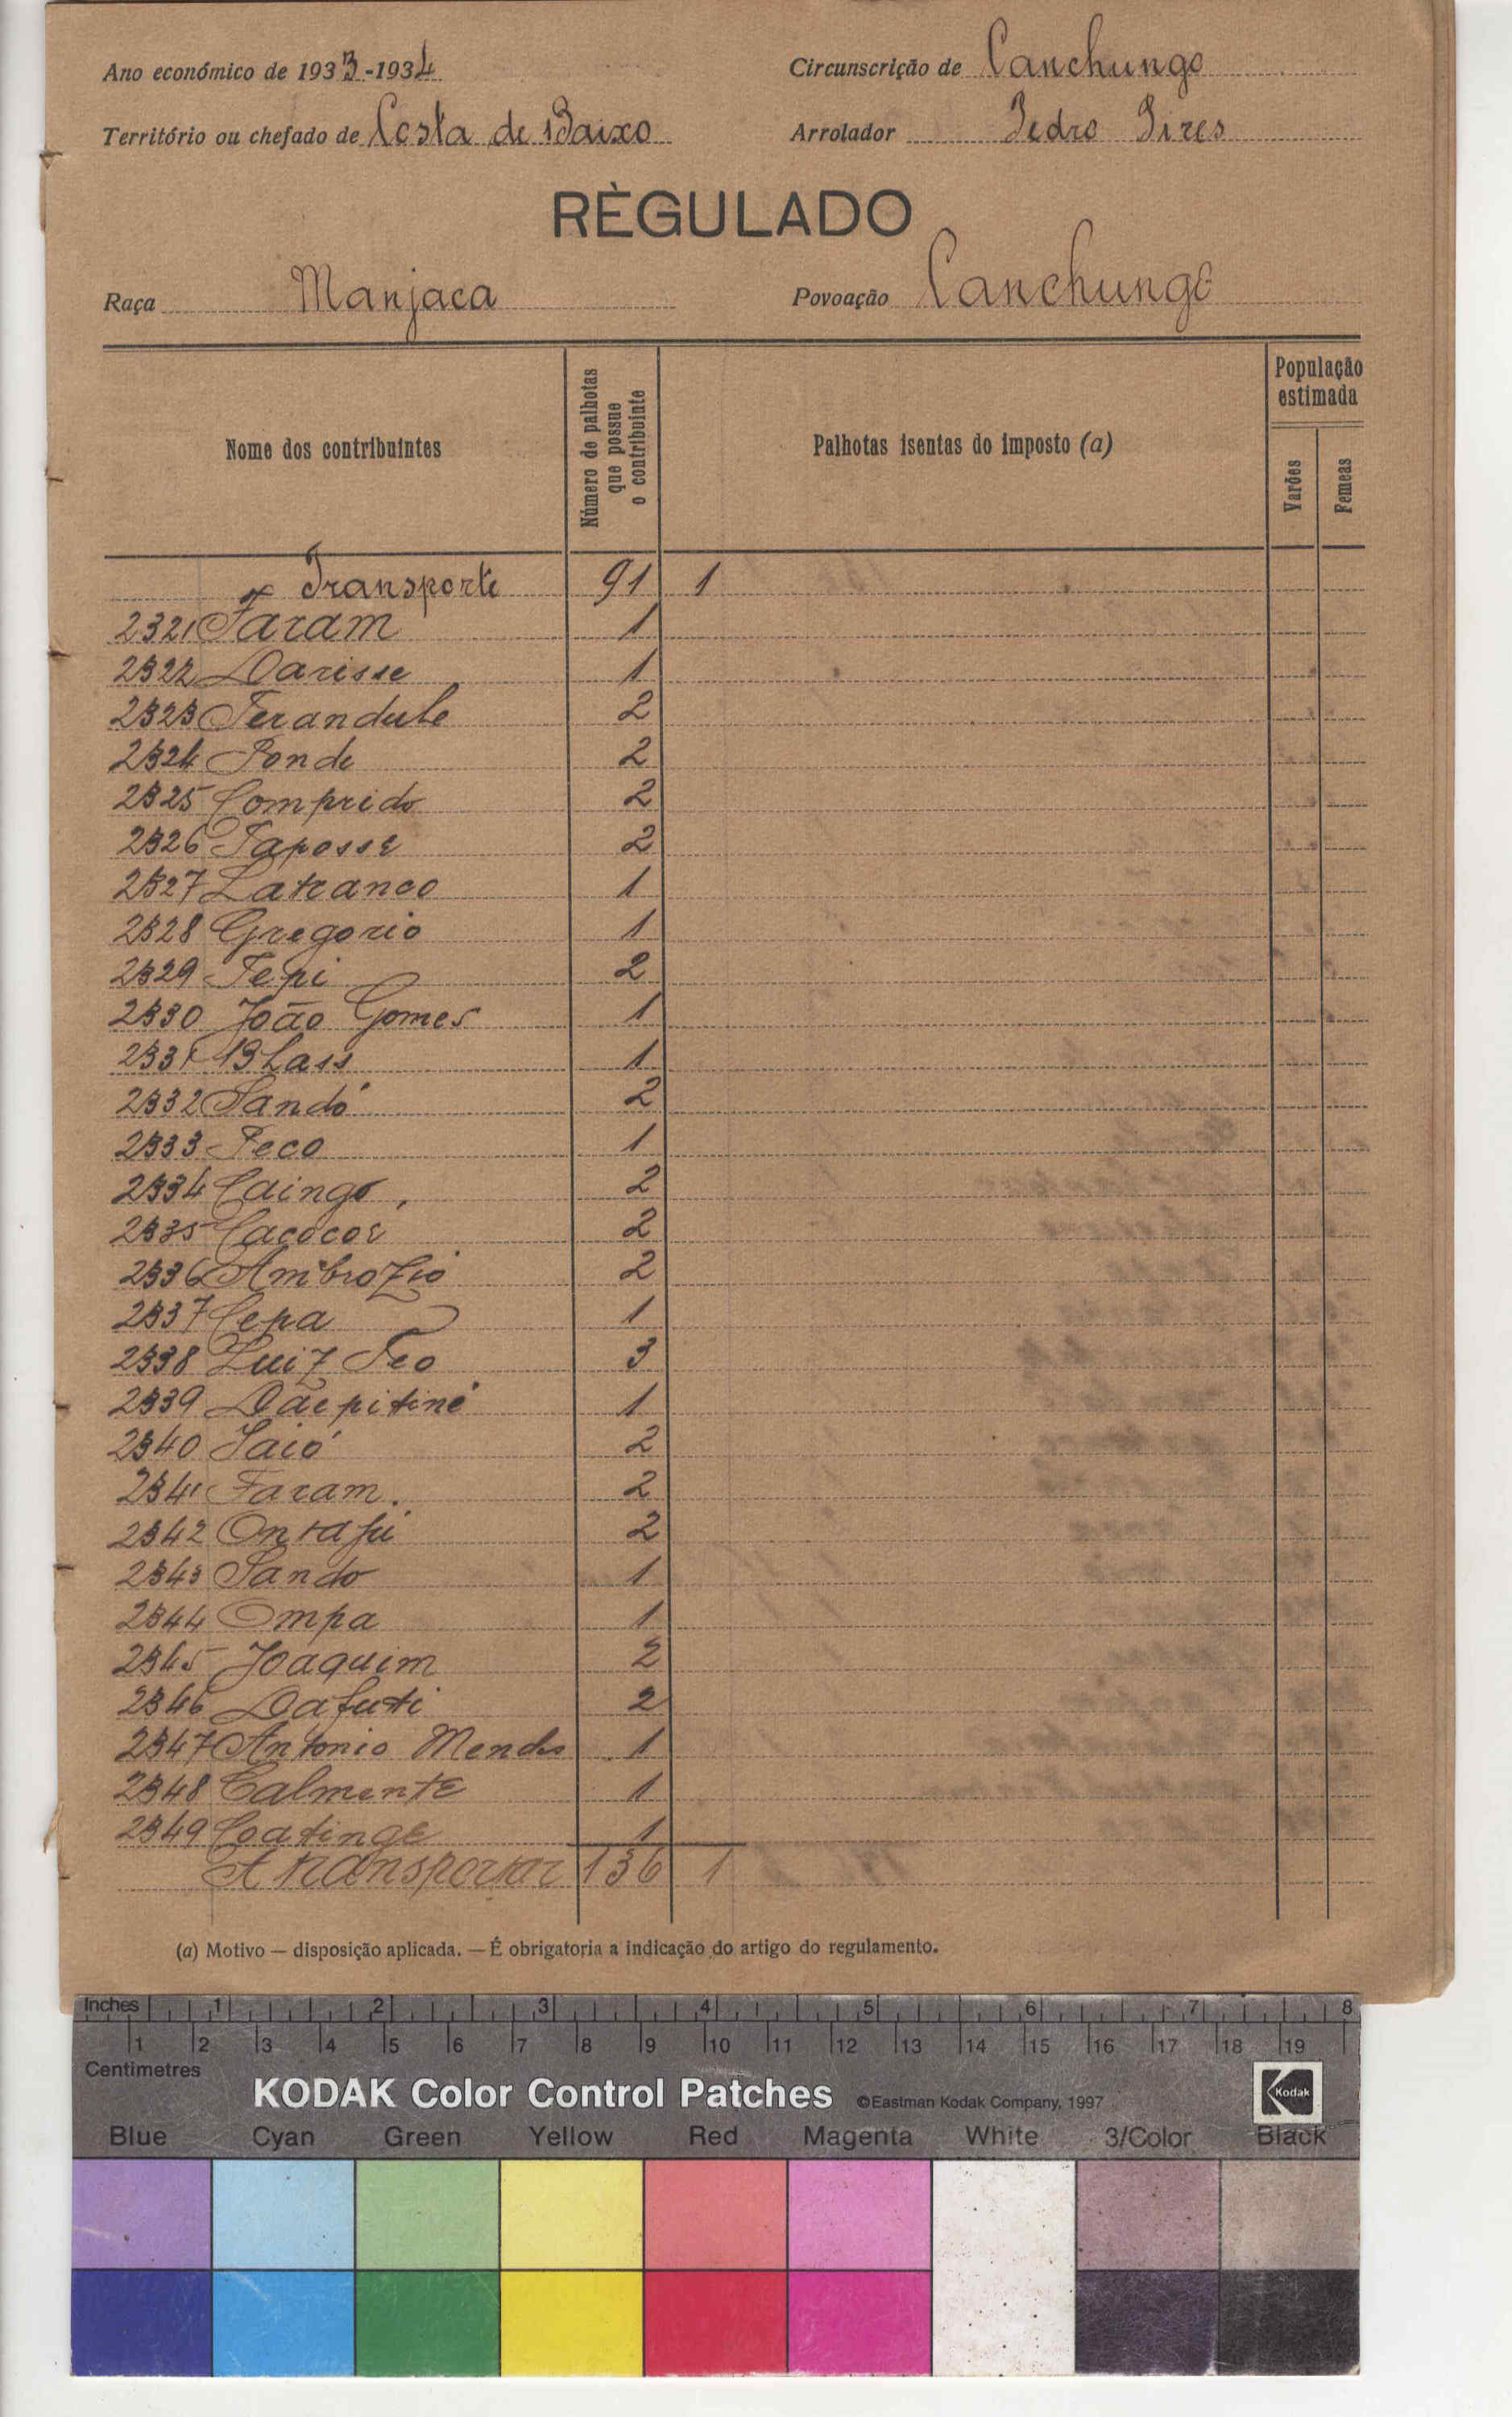 Ano económico de 1933-1934 Circunscrição de Canchungo
Território ou chefado de Costa de Baixo Arrolador Pedro Pires
RÈGULADO
Raça Manjaca Povoação Canchungo
Nome dos contribuintes
Número de palhotas que possue o contribuinte
Palhotas isentas do imposto (a)
População estimada
Varões
Femeas
Transporte 91 1
2321 Faram 1
2322 Darisse 1
2323 Ferandule 2
2324 Ponde 2
2325 Comprido 2
2326 Taposse 2
2327 Latranco 1
2328 Gregorio 1
2329 Tepi 2
2330 João Gomes 1
2331 Blass 1
2332 Sandó 2
2333 Peco 1
2334 Caingo 2
2335 Cacocor 2
2336 Ambrozio 2
2337 Cepa 1
2338 Luiz Teo 3
2339 Daepitiné 1
2340 Saió 2
2341 Faram. 2
2342 Ontafú 2
2343 Sando 1
2344 Ompa 1
2345 Joaquim 2
2346 Dafuti 2
2347 Antonio Mendes 1
2348 Calmente 1
2349 Coatinge 1
A transportar 136 1
(a) Motivo — disposição aplicada. — É obrigatoria a indicação do artigo do regulamento.
Inches 1 2 3 4 5 6 7 8
1 2 3 4 5 6 7 8 9 10 11 12 13 14 15 16 17 18 19
Centimetres
KODAK Color Control Patches ©Eastman Kodak Company, 1997 Kodak
Blue Cyan Green Yellow Red Magenta White 3/Color Black